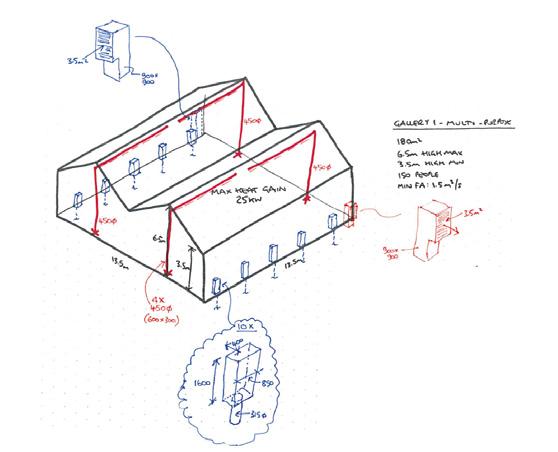 3.5m²
900x
900
GALLERY 1 - MULTI - PURPOSE
180m²
6.5m HIGH MAX
3.5m HIGH MIN
150 PEOPLE
MIN FA: 1.5m³/s
450ø
450ø
MAX HEAT GAIN
25KW
450ø
6.5m
3.5m
13.5m
13.5m
4x
450ø
(600x300)
3.5m²
900x
900
10x
400
1600
850
315ø